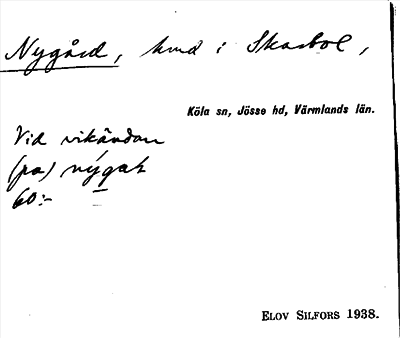 Nygård, hmd i Skarbol,
Köla sn, Jösse hd, Värmlands län.
Vid vikändan
(pa) nýgaḷ
60:-
ELOV SILFORS 1938.